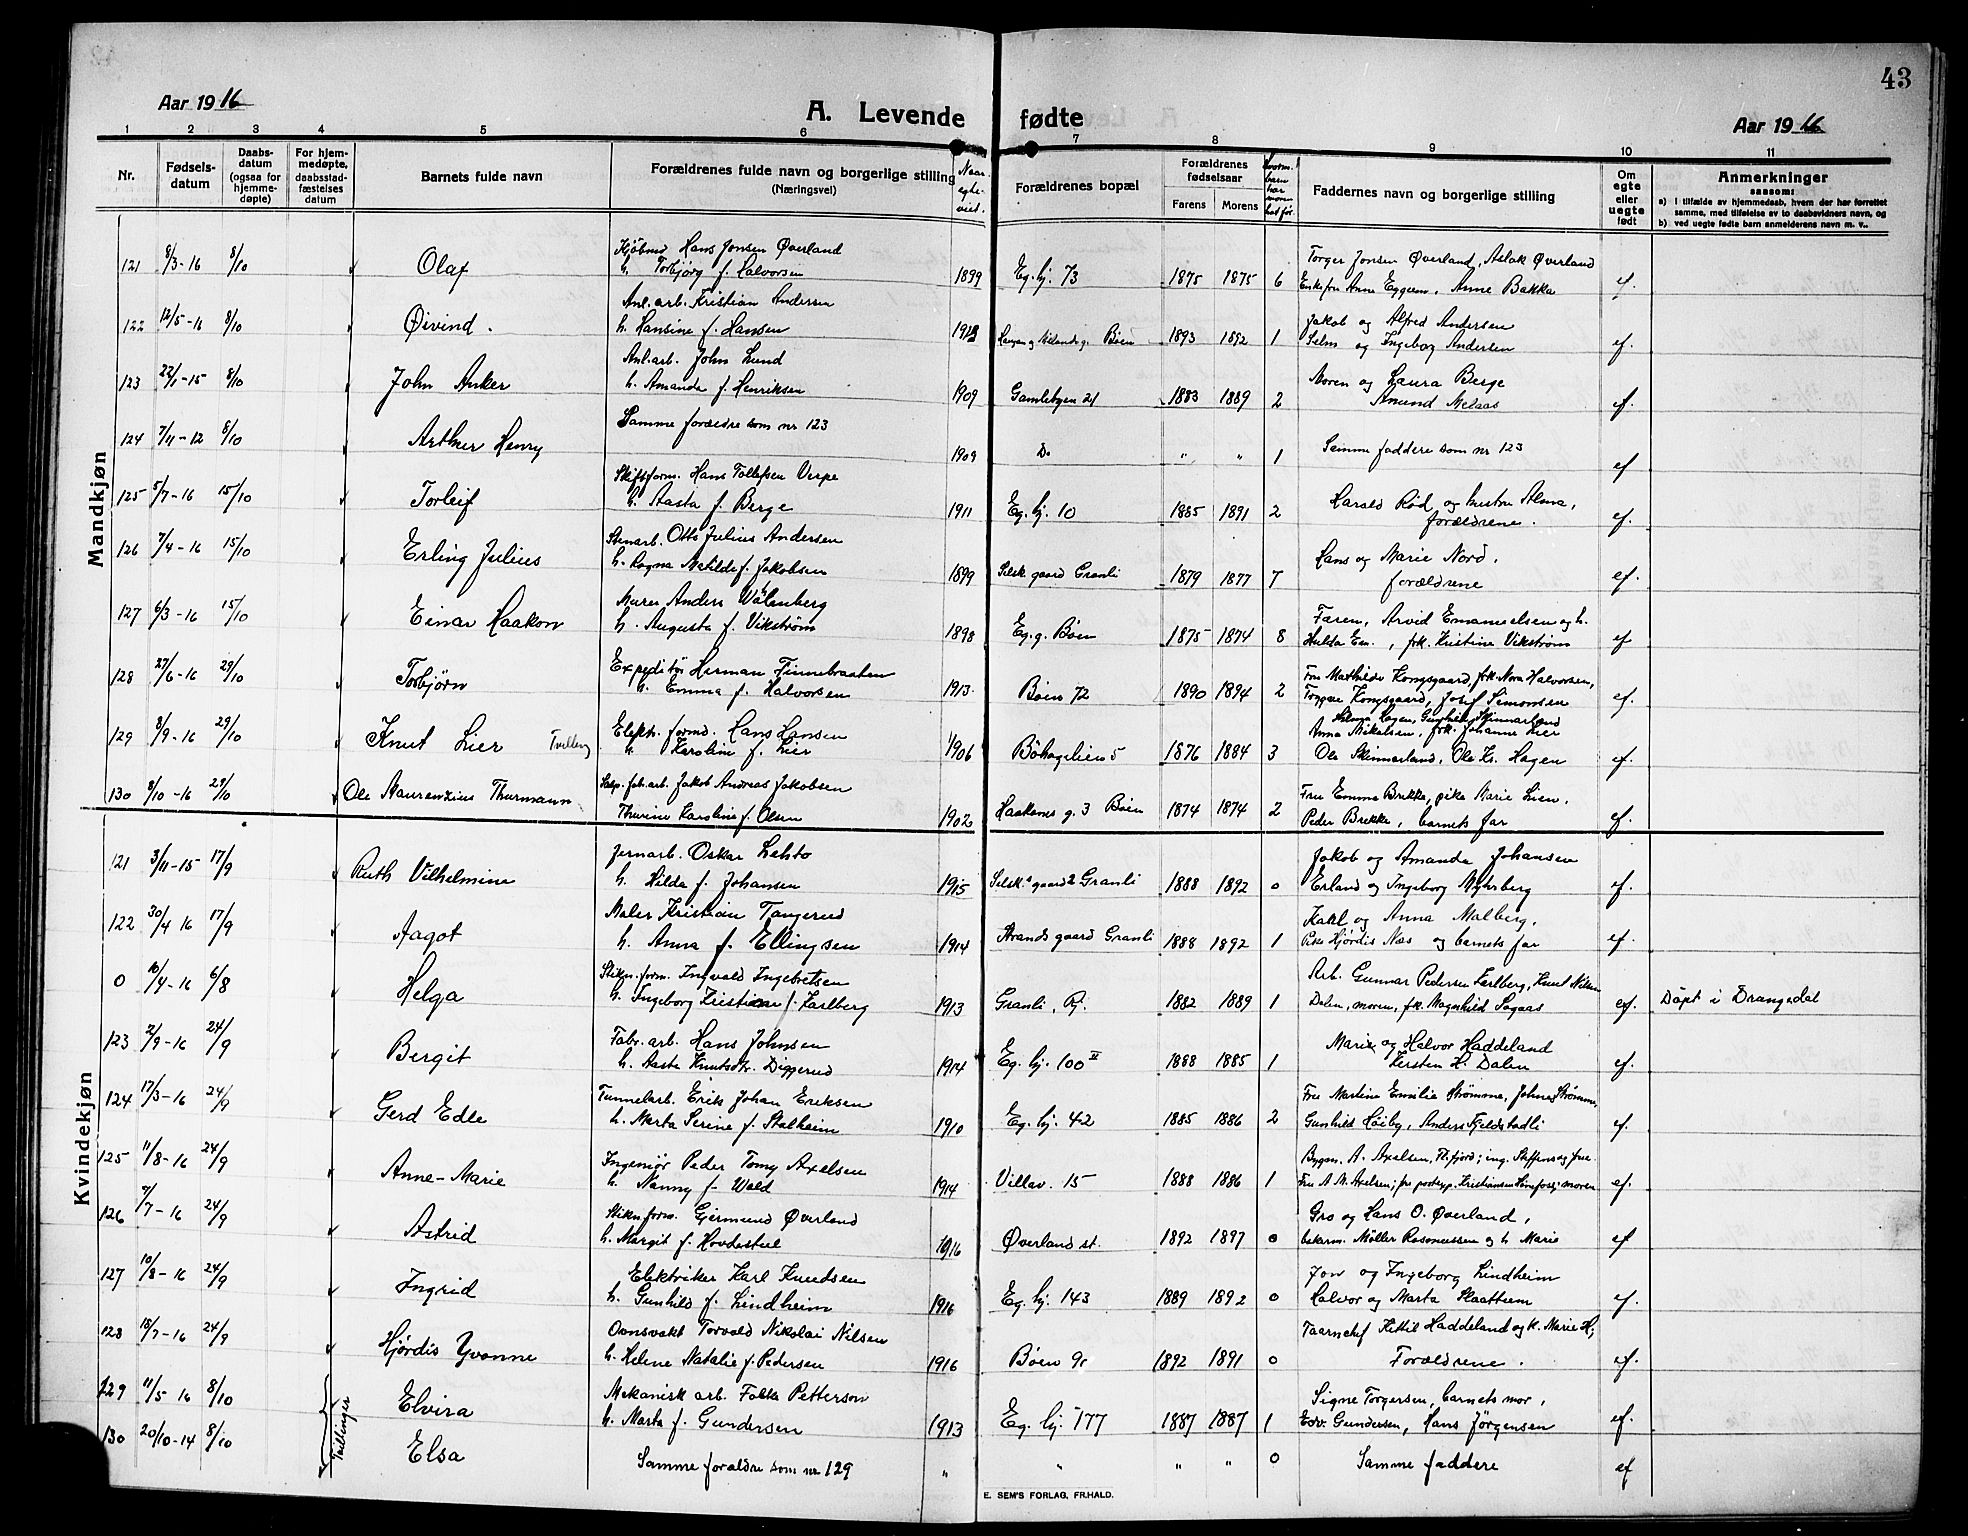 43
Aar 1916
A. Levende fødte
Aar 1916
1 2 3 4 5 6 7 8 9 10 11
Nr.
Fødsels-
datum
Daabs-
datum
(ogsaa for
hjemme-
døpte)
For hjem-
medøpte,
daabsstad-
fæstelses
datum
Barnets fulde navn
Forældrenes fulde navn og borgerlige stilling
(Næringsvei)
Naar
egte-
viet.
Forældrenes bopæl
Forældrenes
fødselsaar
Farens Morens
Faddernes navn og borgerlige stilling
Om
egte
eller
uegte
født
Anmerkninger
saasom:
a) i tilfælde av hjemmedaab, hvem der har forrettet
samme, med tilføielse av to daabsvidners navn, og
b) ved uegte fødte barn anmelderens navn m. v..
Mandkjøn
Kjøbmd Hans Jonsen Øverland Torger Jonsen Øverland, Aslak Øverland
121 8/3-16 8/10 Olaf h. Torbjørg f. Halvorsen 1899 Eg. hj. 73 1875 1875 6 Enkefru Anne Eggum, Anne Bakka ef.
Anl. arb. Kristian Andersen Jakob og Alfred Andersen
122 12/5-16 8/10 Øivind. h. Hansine f. Hansen 1913 Bøen 1893 1892 1 Selm og Ingeborg Andersen ef.
Anl. arb. John Lund Moren og Laura Berge
123 22/1-15 8/10 John Anker h. Amanda f. Henriksen 1909 Gamlebyen 21 1883 1889 2 Amund Melaas ef.
Samme forældre som nr 123
124 7/11-12 8/10 Arthur Henry 1909 Do " " 1 Samme faddere som nr 123 ef
Skiftform. Hans Tollefsen Verpe Harald Rød og hustru Alma,
125 5/7-16 15/10 Torleif h. Aasta f. Berge 1911 Eg. hj. 10 1885 1891 2 forældrene. ef.
Stenarb. Otto Julius Andersen Hans og Marie Nord.
126 7/4-16 15/10 Erling Julius h. Ragna Matilde f. Jakobsen 1899 Selsk. gaard Granli 1879 1877 7 forældrene ef.
Murer Anders Wålenberg Faren, Arvid Emanuelsen og h.
127 6/3-16 15/10 Einar Haakon h. Augusta f. Vikstrøm 1898 Eg. g. Bøen 1875 1874 8 Hulda Em., frk. Kristine Vikstrøm ef
Expeditør Herman Finnebraaten Fru Mathilde Kongsgaard, frk. Nora Halvorsen,
128 27/6-16 29/10 Torbjørn h. Emma f. Halvorsen 1913 Bøen 72 1890 1894 2 Kongsgaard, Josef Simonsen ef.
Hagen, Skinnarland
Elektr. formd. Hans Hansen Anna Mikelsen, frk. Johanne Lier
129 8/9-16 29/10 Knut Lier Tvilling h. Karoline f. Lier 1906 Bøhagelien 5 1876 1884 3 Ole Skinnarland, Ole Kr. Hagen ef.
Salp. fab. arb. Jakob Andreas Jakobsen Fru Emma Brekke, pike Marie Lien,
130 8/10-16 29/10 Ole Laurenzius Thurmann Thurine Karoline f. Olsen 1902 Haakanes g. 3 Bøen 1874 1874 2 Peder Brekke, barnets far ef.
Kvindekjøn
Jernarb. Oskar Lehto Jakob og Amanda Johansen
121 3/11-15 17/9 Ruth Vilhelmine h. Hilda f. Johansen 1915 Selsk. gaard 2 Granli 1888 1892 0 Erland og Ingeborg Myhrberg ef.
Maler Kristian Tangerud Karl og Anna Malberg,
122 30/4 16 17/9 Aagot h. Anna f. Ellingsen 1914 Strands gaard Granli 1888 1892 1 Pike Hjørdis Næs og barnets far ef.
Stikn. form. Ingvald Ingebretsen Arb. Gunnar Pedersen Karlberg, Knut Nilsen
0 16/4-16 6/8 Helga h. Ingeborg Kristiane f. Karlberg 1913 Granli, Rj. 1882 1889 1 Dalen, moren, frk. Magnhild Sagaas ef. Døpt i Drangedal
Fabr. arb. Hans Johnsen Marie og Halvor Haddeland
123 2/9-16 24/9 Bergit h. Aasta Knutsdtr. Diggerud 1914 Eg. hj. 100 II 1888 1885 1 Kersten H. Dalen ef.
Tunnelarb. Erik Johan Eriksen Fru Martine Emilie Strømme, Johnes Strømme,
124 17/3-16 24/9 Gerd Edle h. Marta Serine f. Stalheim 1910 Eg. hj. 42 1885 1886 2 Gunhild Høiby, Anders Fjeldstadli ef.
Ingeniør Peder Tomy Axelsen Bygm. A. Axelsen, Th.fjord; ing. Steffens og frue
125 11/8-16 24/9 Anne-Marie h. Nanny f. Wold 1914 Villav. 15 1888 1886 1 Fru A. M. Axelsen; moren ef.
Stikn. form. Gjermund Øverland Gro og Hans O. Øverland,
126 7/7-16 24/9 Astrid h. Margit f. Hovdestul 1916 Øverland st. 1892 1897 0 bokarm. Møller Rasmussen og h. Marie ef
Elektriker Karl Knudsen Jon og Ingeborg Lindheim
127 10/8-16 24/9 Ingrid h. Gunhild f. Lindheim 1916 Eg. hj. 143 1889 1892 0 Halvor og Marta Slaattum ef.
Ovnsvakt Torvald Nikolai Nilsen Taarnchef Kittil Haddeland og k. Marie H;
128 18/7-16 24/9 Hjørdis Yvonne h. Helene Natalie f. Pedersen 1916 Bøen 91 1892 1891 0 Forældrene. ef.
Mekanisk arb. Falke Petterson Signe Torgersen, barnets mor,
129 11/5 16 8/10 Elvira h. Marta f. Gundersen 1913 Eg. hj. 177 1887 1887 1 Edv. Gundersen, Hans Jörgensen ef.
130 20/10-14 8/10 Tvillinger Elsa Samme forældre som nr 129 " " " " 0 Samme faddere ef
E. SEM'S FORLAG, FR.HALD.